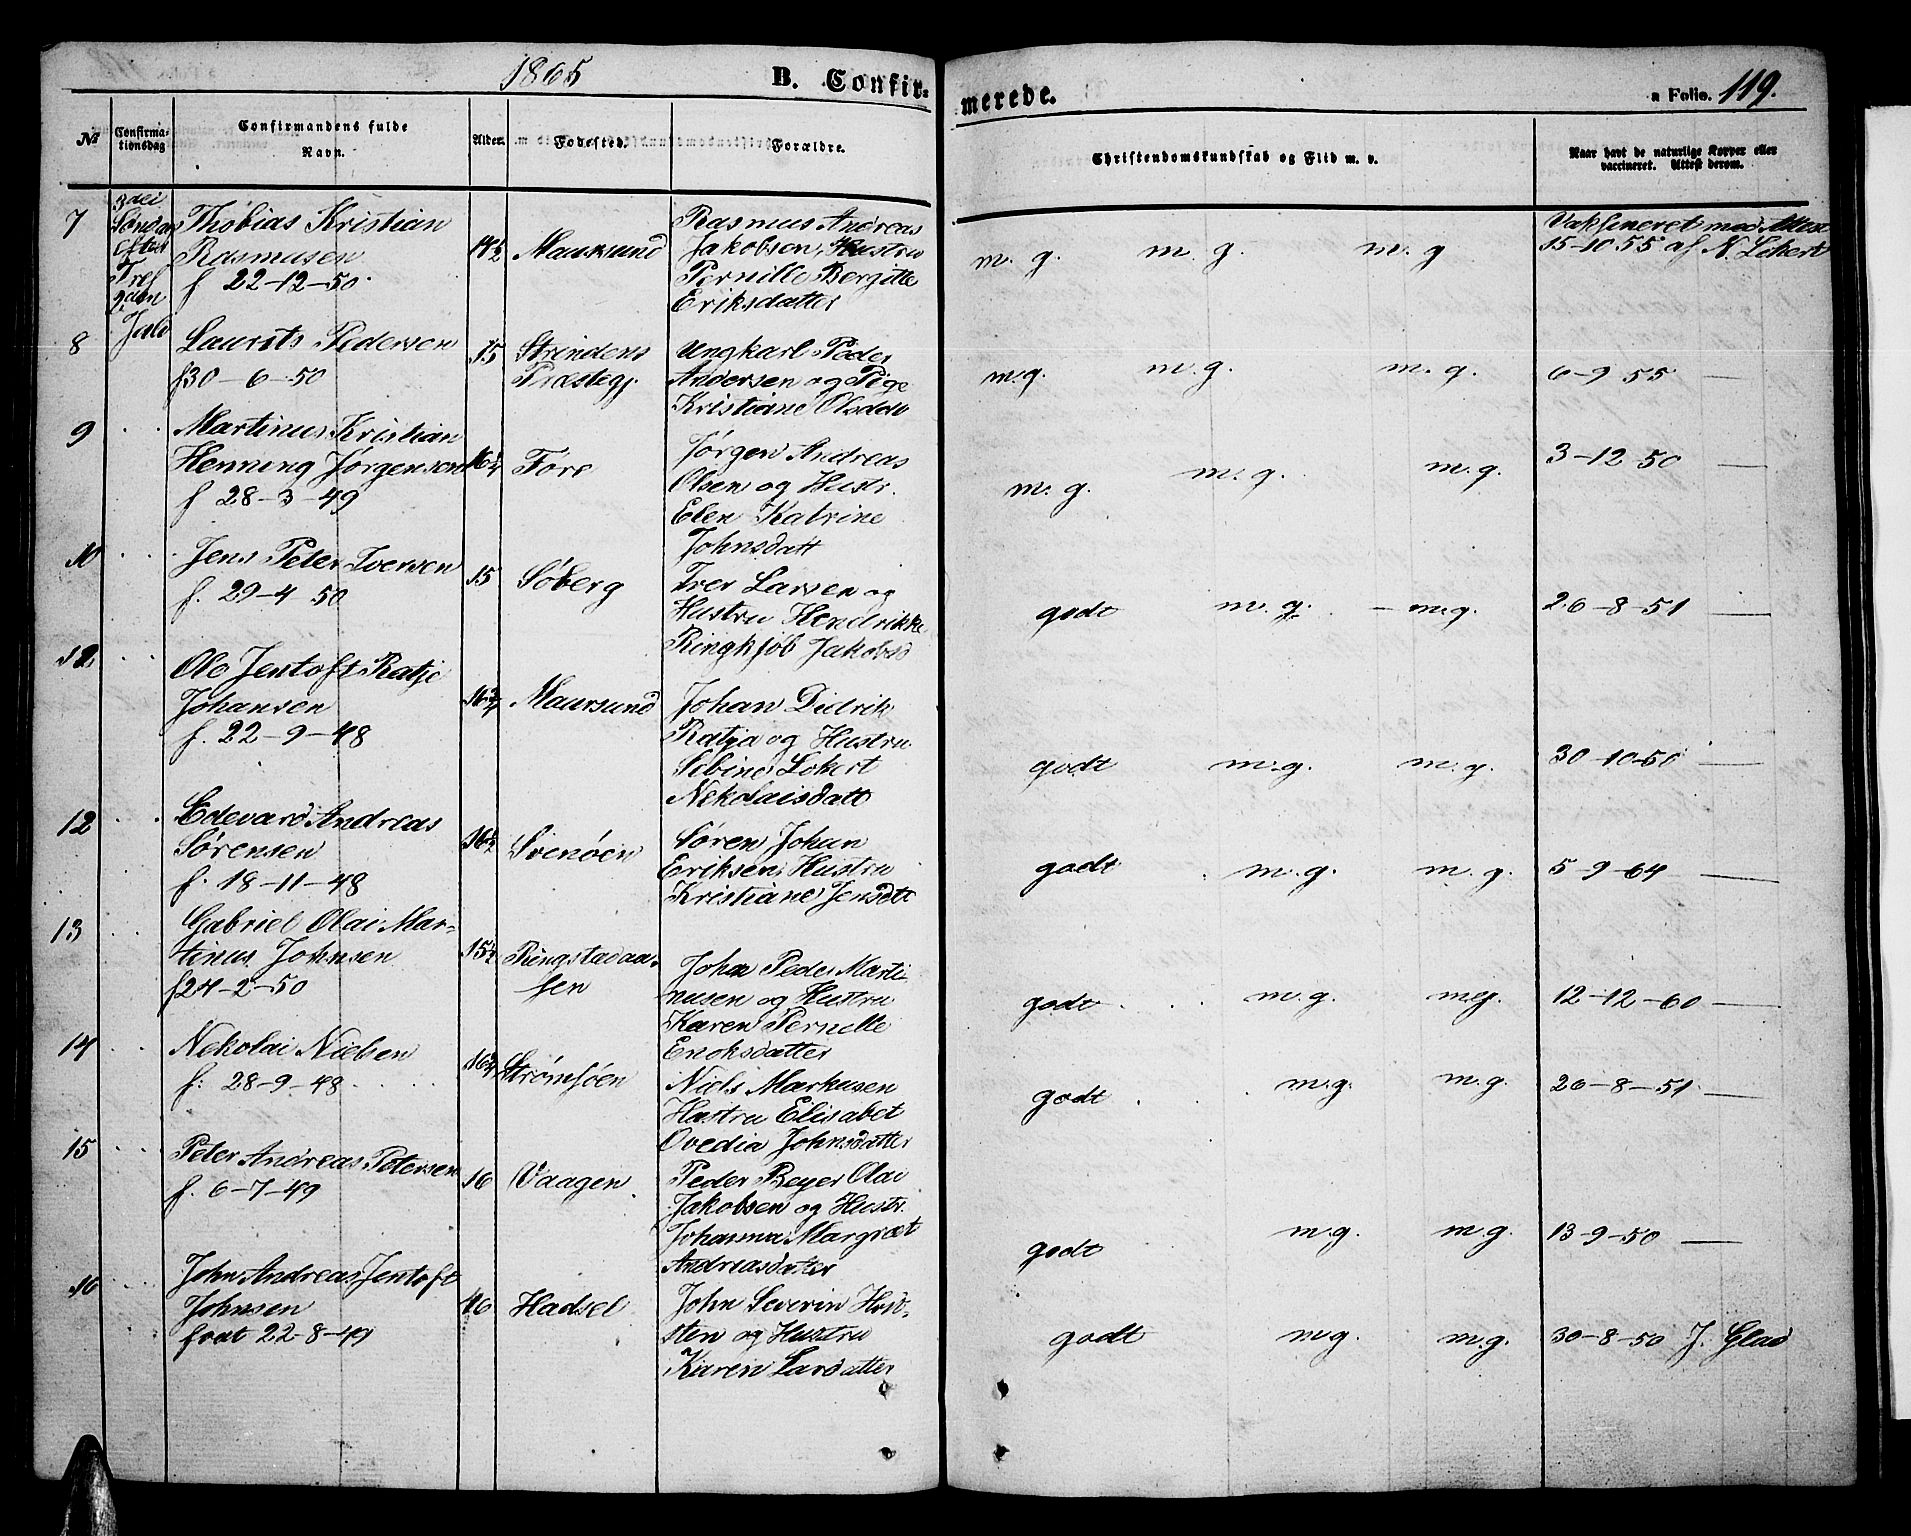 1865 B. Confir-
merede.
a Folio. 119.
No
Confirma-
tionsdag
Confirmandens fulde
Navn.
Alder.
Fødested.
Forældre.
Christendomskundskab og Flid m. v.
Naar havt de naturlige Kopper eller
vaccineret. Attest derom.
7
3die
Søndag
efter
Tref
Thobias Kristian
Rasmusen
f 22-12-50.
14 1/2
Maursund
Rasmus Andreas
Jakobsen, Hustru
Pernille Bergitte
Eriksdatter
m. g. m. g. m. g
Vaksineret med Attest
15-10 55 af N. Lokert
8
Laurits Pedersen
f 30-6-50
15
Strindens
Præstegj.
Ungkarl Peder
Andersen og Pige
Kristiane Olsdatr
m.g. m.g. m.g.
6-9 55 —
9
Martinus Kristian
Henning Jørgensen
f 28-3-49
16 1/4
Fore
Jørgen Andreas
Olsen og Hustr.
Elen Katrine
Johnsdatt
m. g. m. g. m.g.
3-12 50 —
10
Jens Peter Iversen
f. 29-4 50
15
Søberg
Iver Larsen og
Hustru Hendrikke
Ringkjøb Jakobsd
godt m. g. - m.g.
26-8-51 —
Ole Jentoft Ratje
Johansen
f. 22-9-48
16 3/4
Maursund
Johan Didrik
Ratja og Hustru
Sebine Lokert
Nekolaisdatt
godt m.g. m.g.
30-10-50 —
12
Edevard Andreas
Sørensen
f. 18-11-48
16 1/2
Svenøen
Søren Johan
Eriksen Hustru
Kristiane Jensdtt
godt m.g. m.g.
5-9-64 —
13
Gabriel Olai Mar-
tinus Johnsen
f 24-2-50
15 1/2
Ringstadaa-
sen
John Peder Marti-
nusen og Hustru
Karen Pernille
Enoksdatter
godt m.g. m.g.
12-12-60 —
14
Nekolai Nielsen
f: 28-9-48
16 3/4
Strømsøen
Niels Markusen
Hustru Elisabet
Ovedia Johnsdatter
godt m.g. m.g.
26-8-51 —
15
Peter Andreas Petersen
f. 6-7-49
16
Vaagen
Peder Beyer Olai
Jakobsen og Hustr.
Johanna Margræt
Andreasdater
godt m.g. m.g.
13-9-50 —
16
John Andreas Jentoft
Johnsen
født 22-8-49
16
Hadsel
John Severin
og Hustru
Karen Larsdatter
godt m.g. m.g.
30-8-50 J. Glad